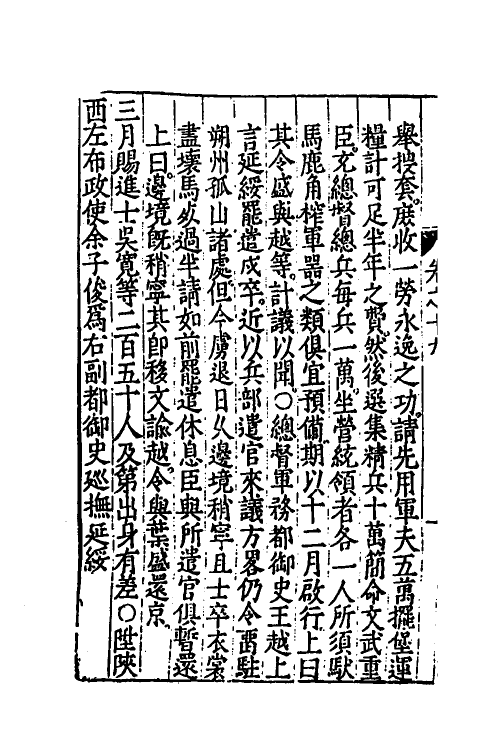 舉搜套庶收一勞永逸之功請先用軍夫五萬擺堡運
糧計可足半年之費然後選集精兵十萬簡命文武重
臣充總督總兵每兵一萬坐營統領者各一人所須馱
馬鹿角榨軍器之類俱宜預備期以十二月啟行上曰
其令盛與越等計議以聞○總督軍務都御史王越上
言延綏罷遣戍卒近以兵部遣官來議方畧仍令畱駐
朔州孤山諸處但今虜退日乆邊境稍寧且士卒衣裳
盡壞馬㱕過半請如前罷遣休息臣與所遣官俱暫還
上曰邊境旣稍寧其卽移文諭越令與葉盛還京
三月賜進士吳寬等二百五十人及第出身有差○陞陜
西左布政使余子俊爲右副都御史廵撫延綏